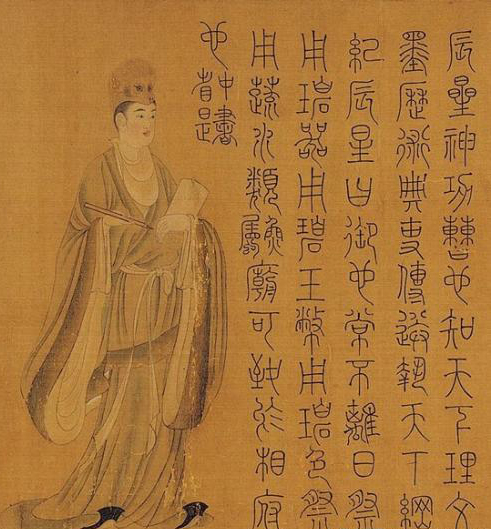 辰星神功曹也知天下理文
墨歷術典吏傳送執天下綱
紀辰星御也常不離日祭
用碧器用碧玉幣用碧色祭
用蔬水類魚屬廟可致於相府
也
中書
省是